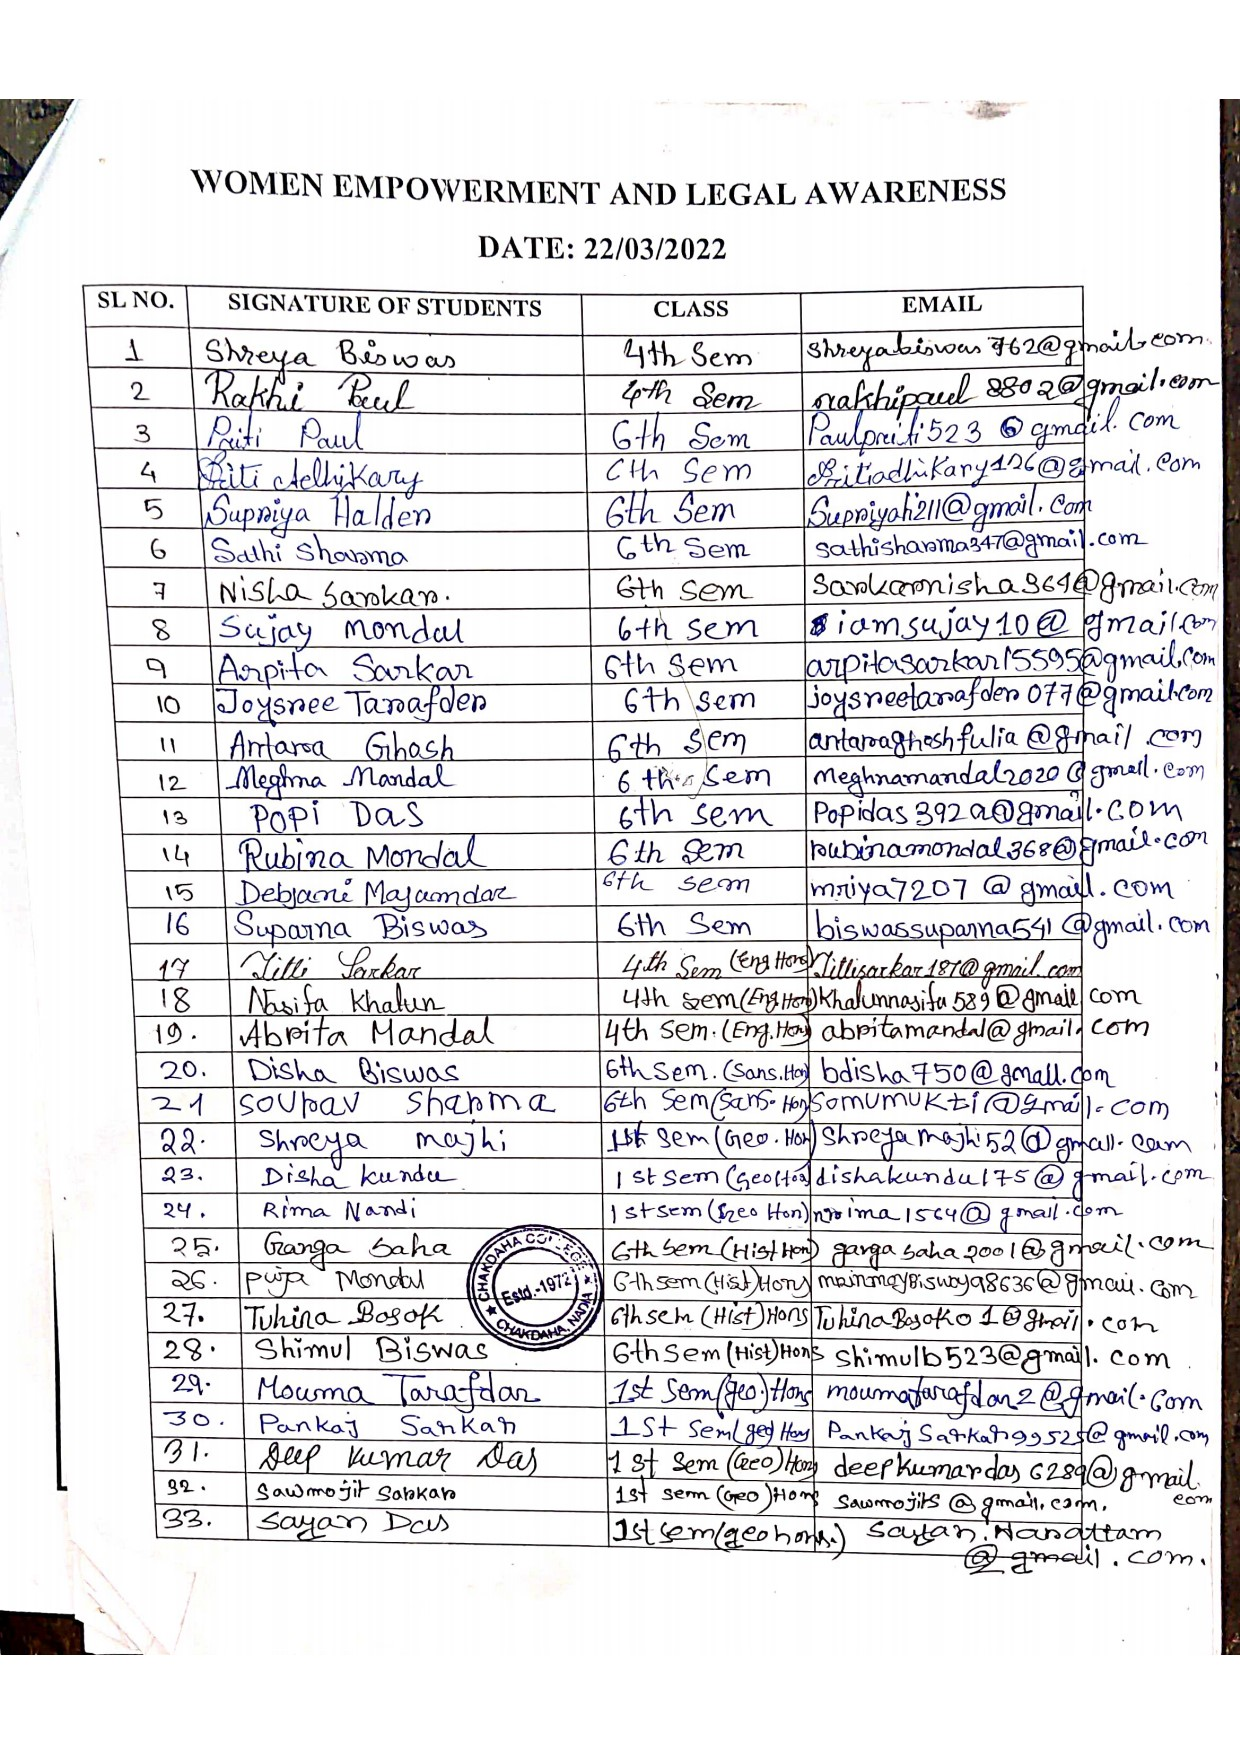 WOMEN EMPOWERMENT AND LEGAL AWARENESS
DATE: 22/03/2022
SL NO. SIGNATURE OF STUDENTS CLASS EMAIL
1 Shreya Biswas 4th Sem Shreyabiswas762@gmail.com
2 Rakhi Paul 4th Sem rakhipaul8802@gmail.com
3 Priti Paul 6th Sem Paulpriti523@gmail.com
4 Priti Adhikary 6th Sem Pritiadhikary126@gmail.com
5 Supriya Halder 6th Sem Supriyah211@gmail.com
6 Sathi Sharma 6th Sem sathisharma347@gmail.com
7 Nisha Sarkar. 6th Sem Sarkarnisha364@gmail.com
8 Sujay Mondal 6th sem iamsujay10@gmail.com
9 Arpita Sarkar 6th Sem arpitasarkar15595@gmail.com
10 Joysree Tarafder 6th sem joysreetarafder077@gmail.com
11 Antara Ghosh 6th Sem antaraghoshfulia@gmail.com
12 Meghna Mandal 6th Sem meghnamandal2020@gmail.com
13 POPI DAS 6th sem Popidas392a@gmail.com
14 Rubina Mondal 6th Sem rubinamondal368@gmail.com
15 Debjani Majumdar 6th sem mriya7207@gmail.com
16 Suparna Biswas 6th Sem biswassuparna541@gmail.com
17 Titli Sarkar 4th Sem (Eng Hons) Titlisarkar187@gmail.com
18 Nasifa Khatun 4th sem (Eng Hon) Khatunnasifa589@gmail.com
19. Abrita Mandal 4th Sem. (Eng. Hon) abritamandal@gmail.com
20. Disha Biswas 6th Sem. (Sans. Hon) bdisha750@gmail.com
21 Sourav Sharma 6th Sem (Sans. Hon) somumukti@gmail.com
22. Shreya Majhi 1st Sem (Geo. Hon) Shreyamajhi52@gmail.com
23. Disha Kundu 1st Sem (Geo Hon) dishakundu175@gmail.com
24. Rima Nandi 1st sem (Geo Hon) nrima1564@gmail.com
25. Ganga Saha 6th Sem (Hist Hon) gargasaha2001@gmail.com
26. Puja Mondal 6th sem (Hist) Hons @gmail.com
27. Tuhina Bosok 6th sem (Hist) Hons TuhinaBosok01@gmail.com
28. Shimul Biswas 6th Sem (Hist) Hons shimulb523@gmail.com
29. Mouma Tarafdar 1st Sem (Geo.) Hons moumatarafdar2@gmail.com
30. Pankaj Sarkar 1st Sem (geo) Hons PankajSarkar99525@gmail.com
31. Deep Kumar Das 1st Sem (Geo) Hons deepkumardas6289@gmail.
com
32. Sawmojit Sarkar 1st sem (Geo) Hons sawmojits@gmail.com.
33. Sayan Das 1st sem (geo hons.) Sayan.Narattam
@gmail.com.
CHAKDAHA COLLEGE
Estd.-1972
CHAKDAHA, NADIA